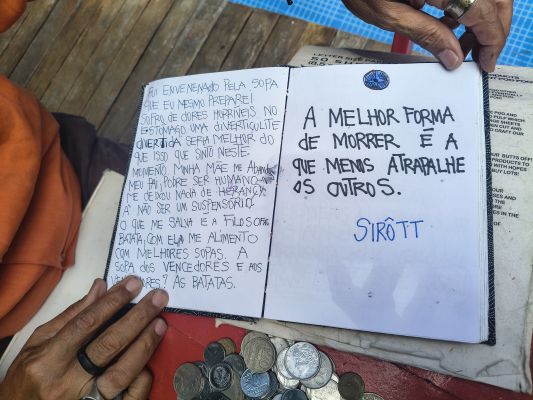 FUI ENVENENADO PELA SOPA
QUE EU MESMO PREPAREI
SOFRO DE DORES HORRÍVEIS NO
ESTOMAGO UMA DIVERTIQULITE
DIVERTIDA SERIA MELHOR DO
QUE ISSO QUE SINTO NESTE
MOMENTO MINHA MÃE ME
MEU PAI, PODRE SER HUMANO
ME DEIXOU NADA DE HERANÇA
A NÃO SER UM SUSPENSÓRIO.
O QUE ME SALVA É A FILOSOFIA
BATATA, COM ELA ME ALIMENTO
COM MELHORES SOPAS. A
SOPA DOS VENCEDORES E AOS
AS BATATAS.
A MELHOR FORMA
DE MORRER É A
QUE MENIS ATRAPALHE
OS OUTROS.
SIRÔTT